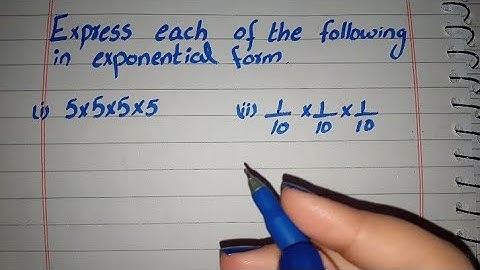 Express each of the following
in exponential form.
(i) 5×5×5×5 (ii) 1/10 × 1/10 × 1/10